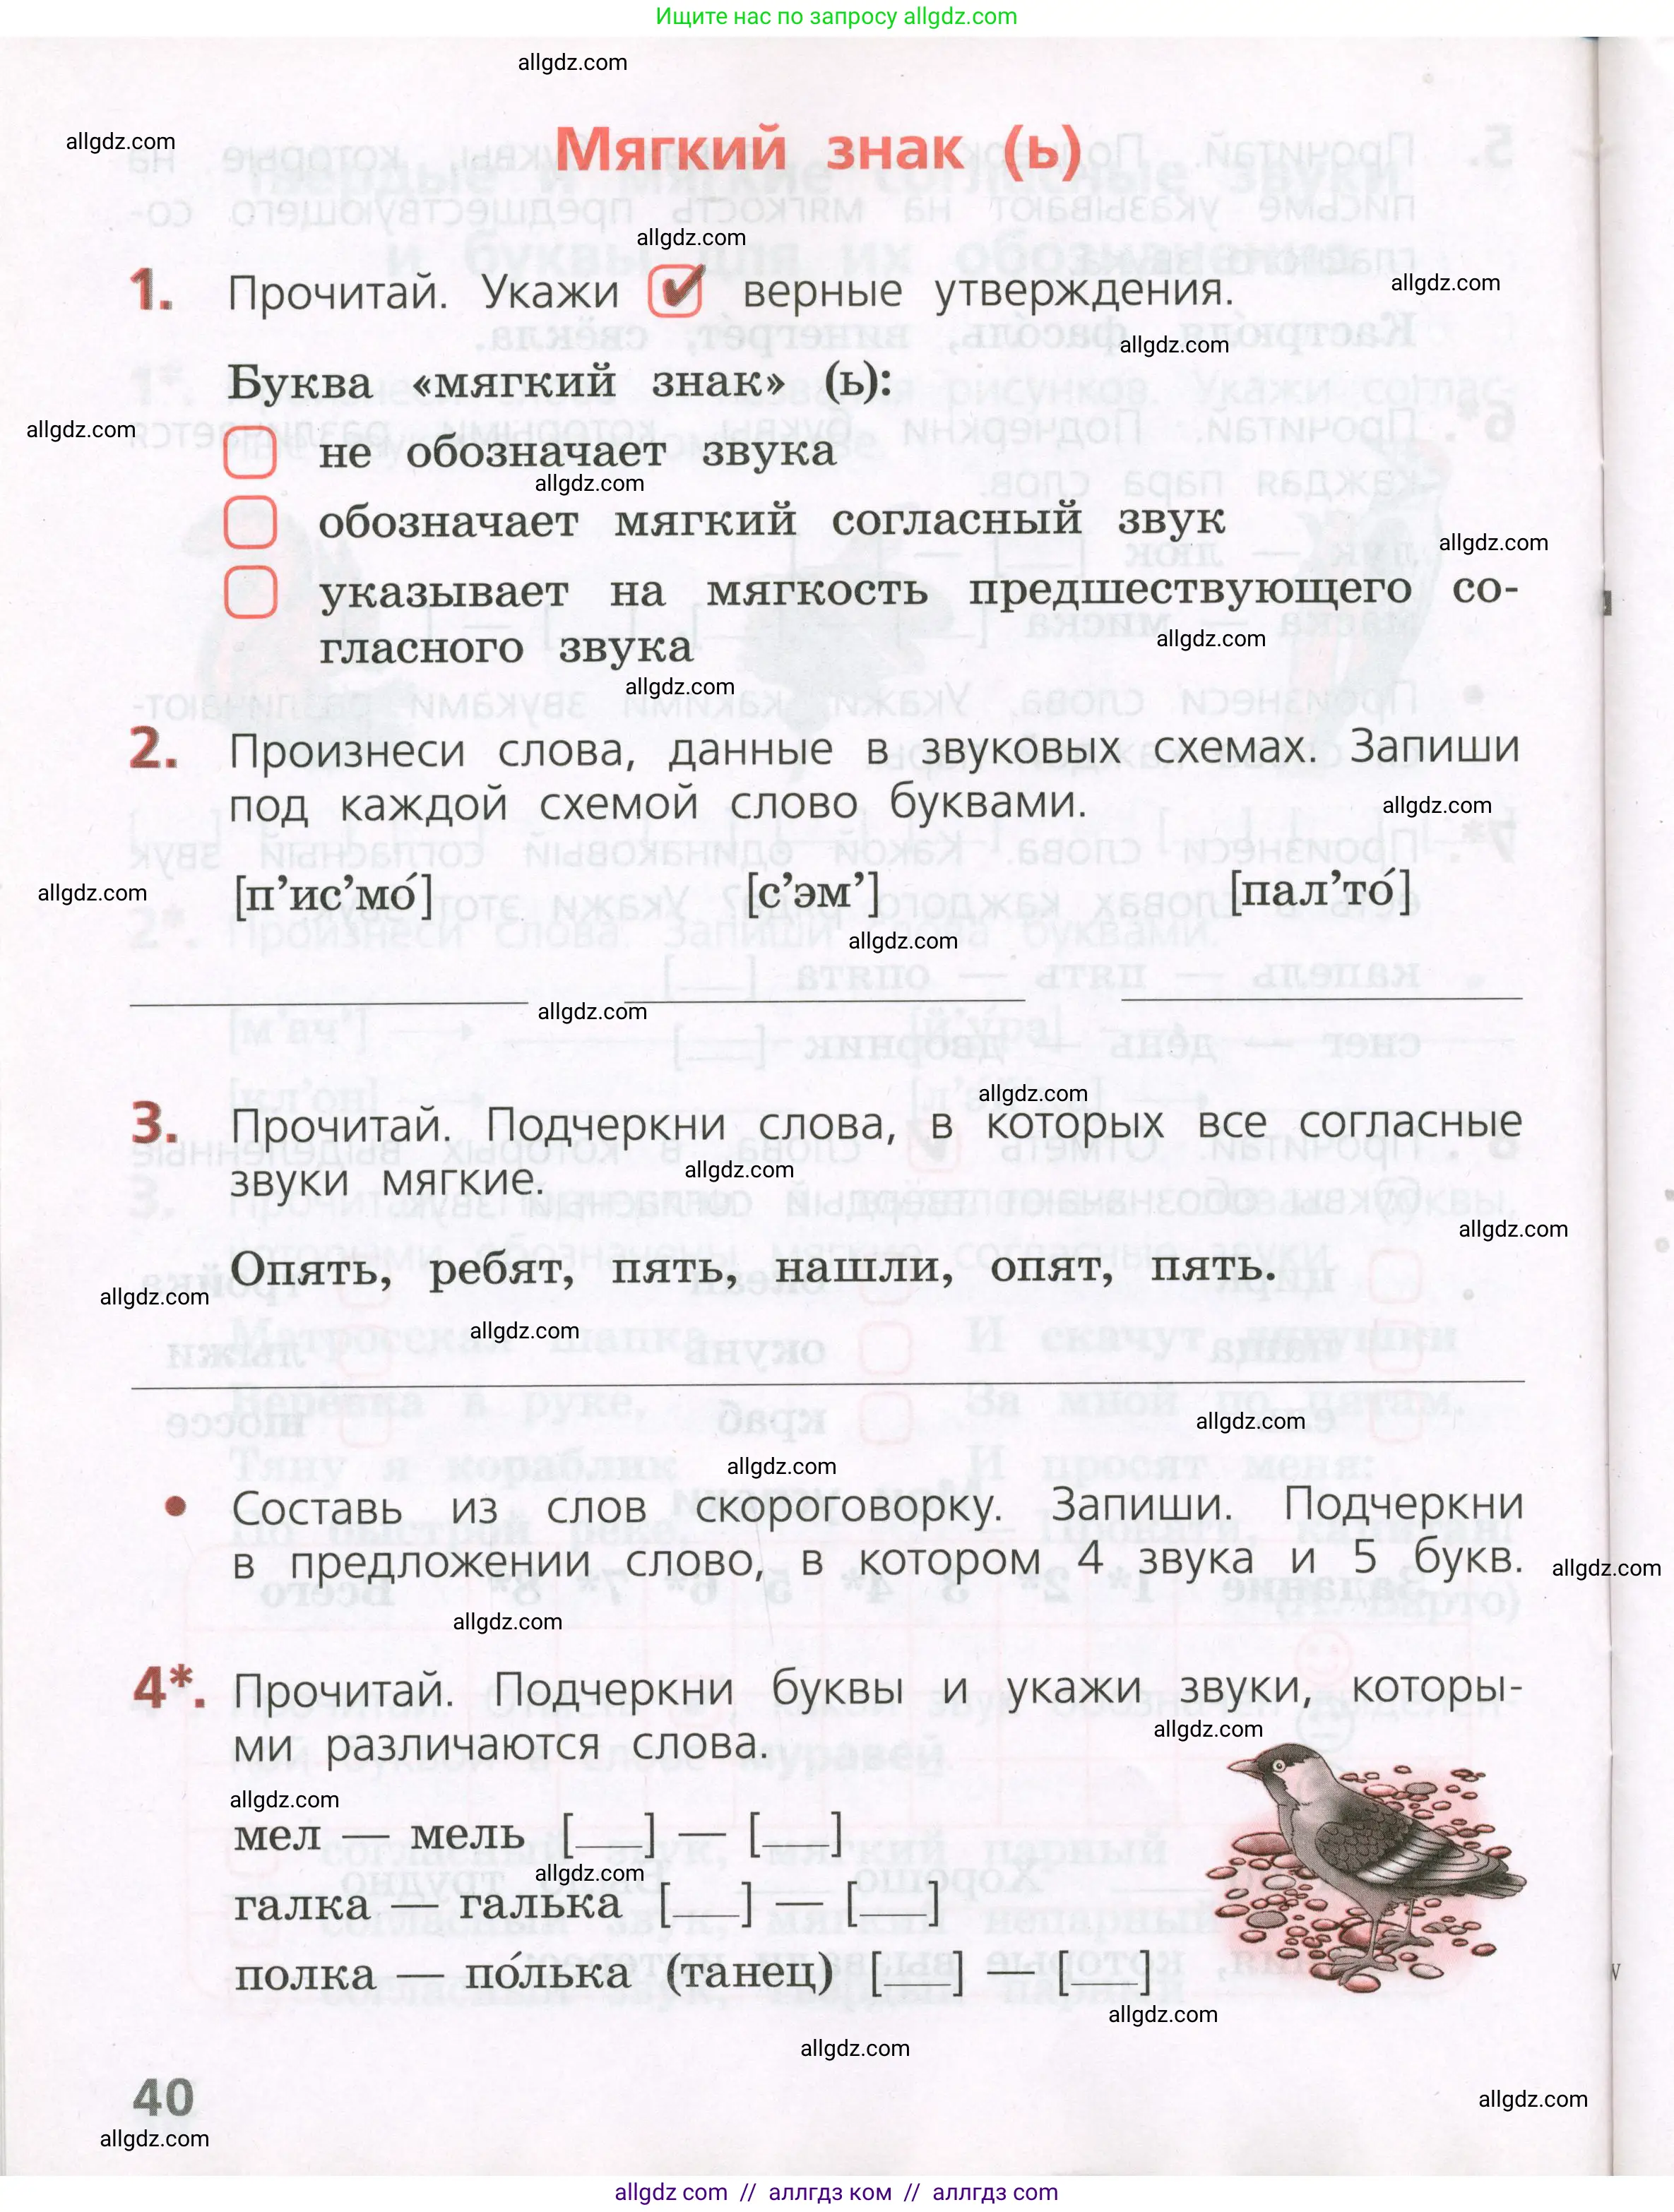 Ищите нас по запросу allgdz.com
allgdz.com
allgdz.com
Мягкий знак (ь)
allgdz.com
1. Прочитай. Укажи ✔ верные утверждения.
allgdz.com
allgdz.com
Буква «мягкий знак» (ь):
allgdz.com
не обозначает звука
allgdz.com
обозначает мягкий согласный звук
allgdz.com
указывает на мягкость предшествующего со-
гласного звука
allgdz.com
allgdz.com
2. Произнеси слова, данные в звуковых схемах. Запиши
под каждой схемой слово буквами.
allgdz.com
[п’ис’мо́] [с’эм’] [пал’то́]
allgdz.com
allgdz.com
allgdz.com
allgdz.com
3. Прочитай. Подчеркни слова, в которых все согласные
звуки мягкие.
allgdz.com
allgdz.com
Опять, ребят, пять, нашли, опят, пять.
allgdz.com
allgdz.com
allgdz.com
allgdz.com
• Составь из слов скороговорку. Запиши. Подчеркни
в предложении слово, в котором 4 звука и 5 букв.
allgdz.com
allgdz.com
4*. Прочитай. Подчеркни буквы и укажи звуки, которы-
ми различаются слова.
allgdz.com
allgdz.com
мел — мель [___] — [___]
allgdz.com
галка — галька [___] — [___]
полка — по́лька (танец) [___] — [___]
allgdz.com
allgdz.com
40
allgdz.com
allgdz.com
allgdz com // аллгдз ком // аллгдз com